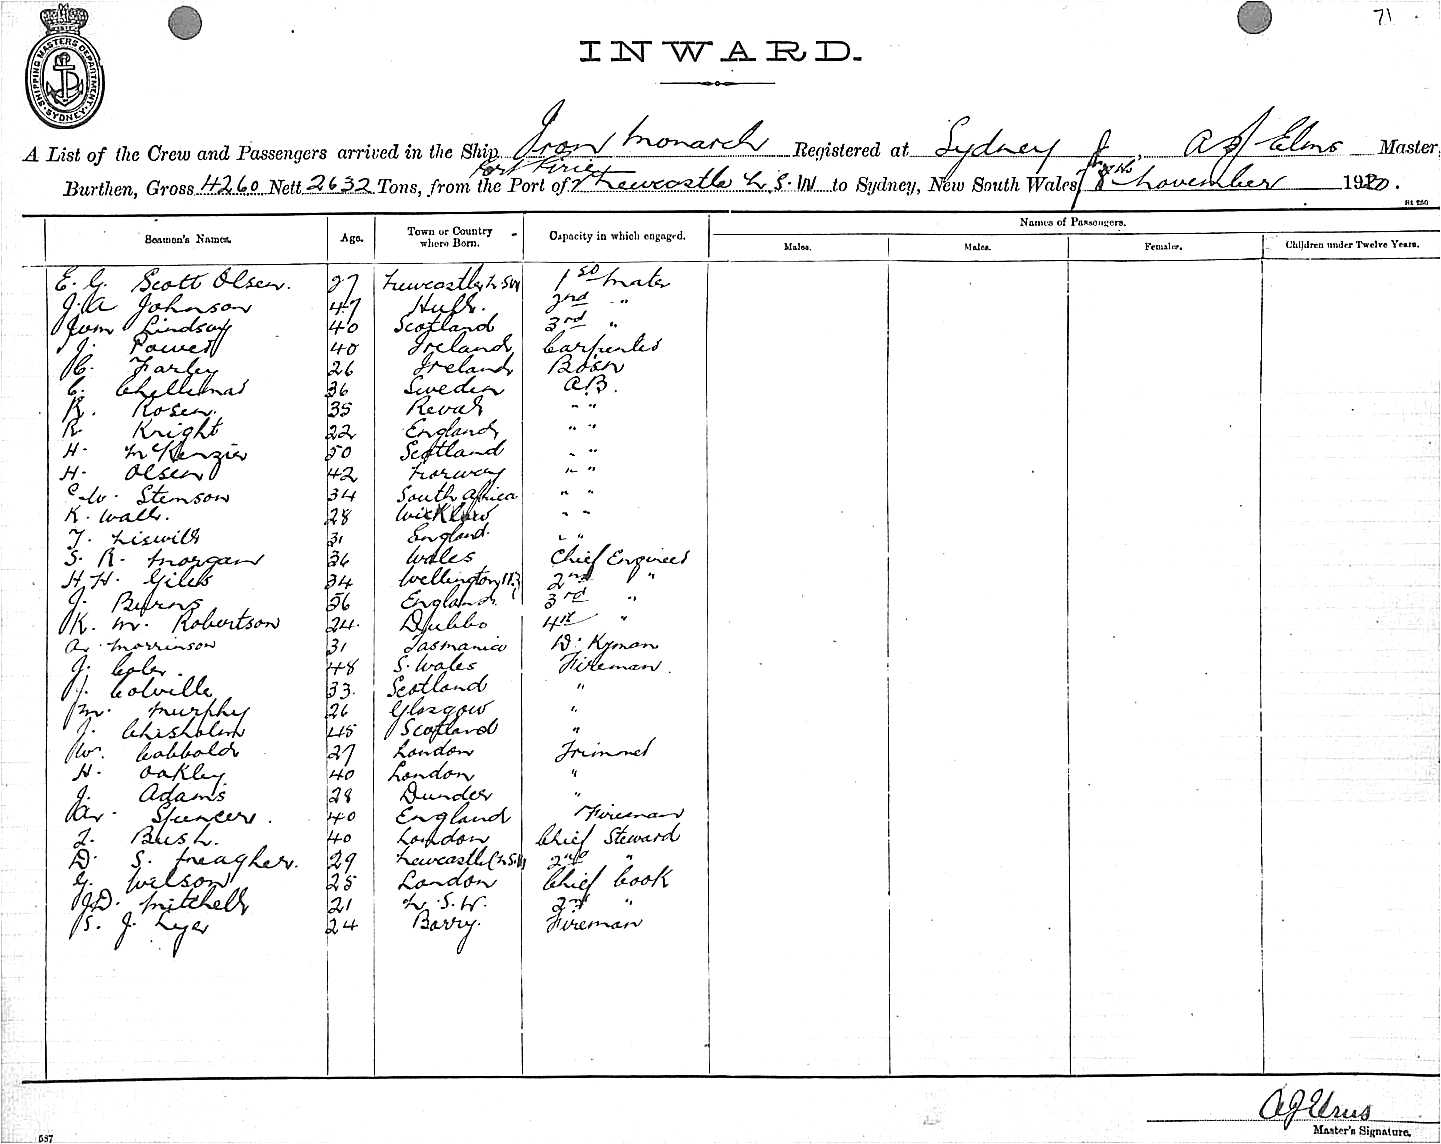 71
SHIPPING MASTERS DEPARTMENT SYDNEY
INWARD.
A List of the Crew and Passengers arrived in the Ship Iron Monarch Registered at Sydney, A J Elms Master,
Port Pirie
Burthen, Gross 4260 Nett 2632 Tons, from the Port of Newcastle N.S.W to Sydney, New South Wales, 8 November 1920.
Names of Passengers.
Seamen's Names. Age. Town or Country where Born. Capacity in which engaged. Males. Males. Females. Children under Twelve Years.
E. G. Scott Olsen. 27 Newcastle, N SW 1st Mate
J. A Johnson 47 Hull. 2nd "
Lindsay 40 Scotland 3rd "
J. Power 40 Ireland Carpenter
C. Farley 26 Ireland Bosn
C. 36 Sweden A.B.
R. Rosen. 35 Reval " "
R Knight 22 England " "
H. McKenzie 50 Scotland " "
H. Olsen 42 Norway " "
Stenson 34 South Africa " "
K. Wall. 28 Wicklow " "
T. 31 England. " "
S. R. Morgan 36 Wales Chief Engineer
H. H. Giles 34 Wellington N.Z 2nd "
J. Burns 56 England. 3rd "
K. M. Robertson 24. Dubbo 4th "
A. Morrinson 31 Tasmania D. Kyman
J. Coler. 48 S. Wales Fireman
J. Colville 33. Scotland "
M. Murphy 26 Glasgow "
J. Chisholm 45 Scotland "
W. Cobbold 27 London Trimmer
H. Oakley 40 London "
J. Adams 28 Dundee "
A. Spencer. 40 England Fireman
F. Bush. 40 London Chief Steward
D. S. Meagher. 29 Newcastle (N.S.W) 2nd "
G. Wilson 25 London Chief Cook
J D. Mitchell 21 N.S.W. 2nd "
S. J. Lyer 24 Barry. Fireman
A J Elms
Master's Signature.
537